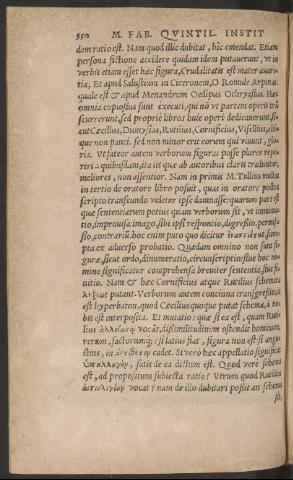 550 M. FAB. QVINTIL. INSTIT
dem ratio est. Nam quod illic dubitat, hic emendat. Etiam
personæ fictione accidere quidam idem putauerunt, vt in
verbis etiam esset hæc figura, Crudelitatis est mater auari-
tia, Et apud Salustium in Ciceronem, O Romule Arpinas:
quale est & apud Menandrum Oedipus
omnia copiosius sunt executi, qui nō vt partem operis trā
scurrerunt, sed propriè libros huic operi dedicauerunt, si-
cut Cæcilius, Dionysius, Rutilius, Cornificius, Visellius, aliíq;
que non pauci. sed non minor erit eorum qui viuunt, glo-
ria. Vt fateor autem verborum figuras posse plures repe-
riri à quibusdam, ita iis quæ ab autoribus claris traduntur,
meliores, non assentior. Nam in primis M. Tullius multas
in tertio de oratore libro posuit, quas in oratore postea
scripto transeundo videtur ipse damnasse: quarum pars est
quæ sententiarum potius quàm verborum sit, vt imminu-
tio, improuisa imago, sibi ipsi responsio, digressio, permis-
sio, contrariū. hoc enim puto quod dicitur
pta ex aduerso probatio. Quædam omnino non sunt fi-
guræ, sicut ordo, dinumeratio, circunscriptio: siue hoc no-
mine significatur comprehensa breuiter sententia, siue fi-
nitio. Nam & hæc Cornificius atque Rutilius schemata
putant. Verborum autem concinna transgressio, id
est hyperbaton, quod Cæcilius quoque putat schema, à no-
bis est interposita. Et mutatio: quæ si ea est, quam Ruti-
lius vocat, dissimilitudinem ostendit hominum,
rerum, factorumq;: si latius fiat, figura non est: si angu-
stius, in cadet. Si verò hæc appellatio significat
satis de ea dictum est. Quod verò schema
est, ad propositum subiecta ratio? Vtrum quod Rutilius
vocat? nam de illo dubitari possit an schema
sit,